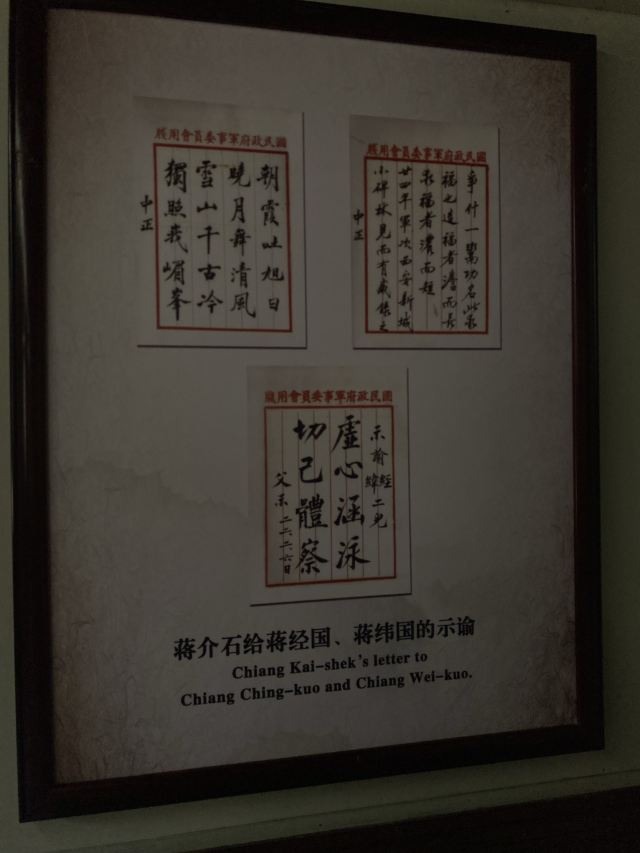 國民政府軍事委員會用牋
朝霞吐旭日
曉月舞清風
雪山千古冷
獨照峩嵋峯
中正
國民政府軍事委員會用牋
福者澹而長
求福者濃而短
廿四年軍次西安新城
小碑林見而有感錄之
中正
國民政府軍事委員會用牋
示諭經緯二兒
虛心涵泳
切己體察
父示
蒋介石给蒋经国、蒋纬国的示谕
Chiang Kai-shek's letter to
Chiang Ching-kuo and Chiang Wei-kuo.